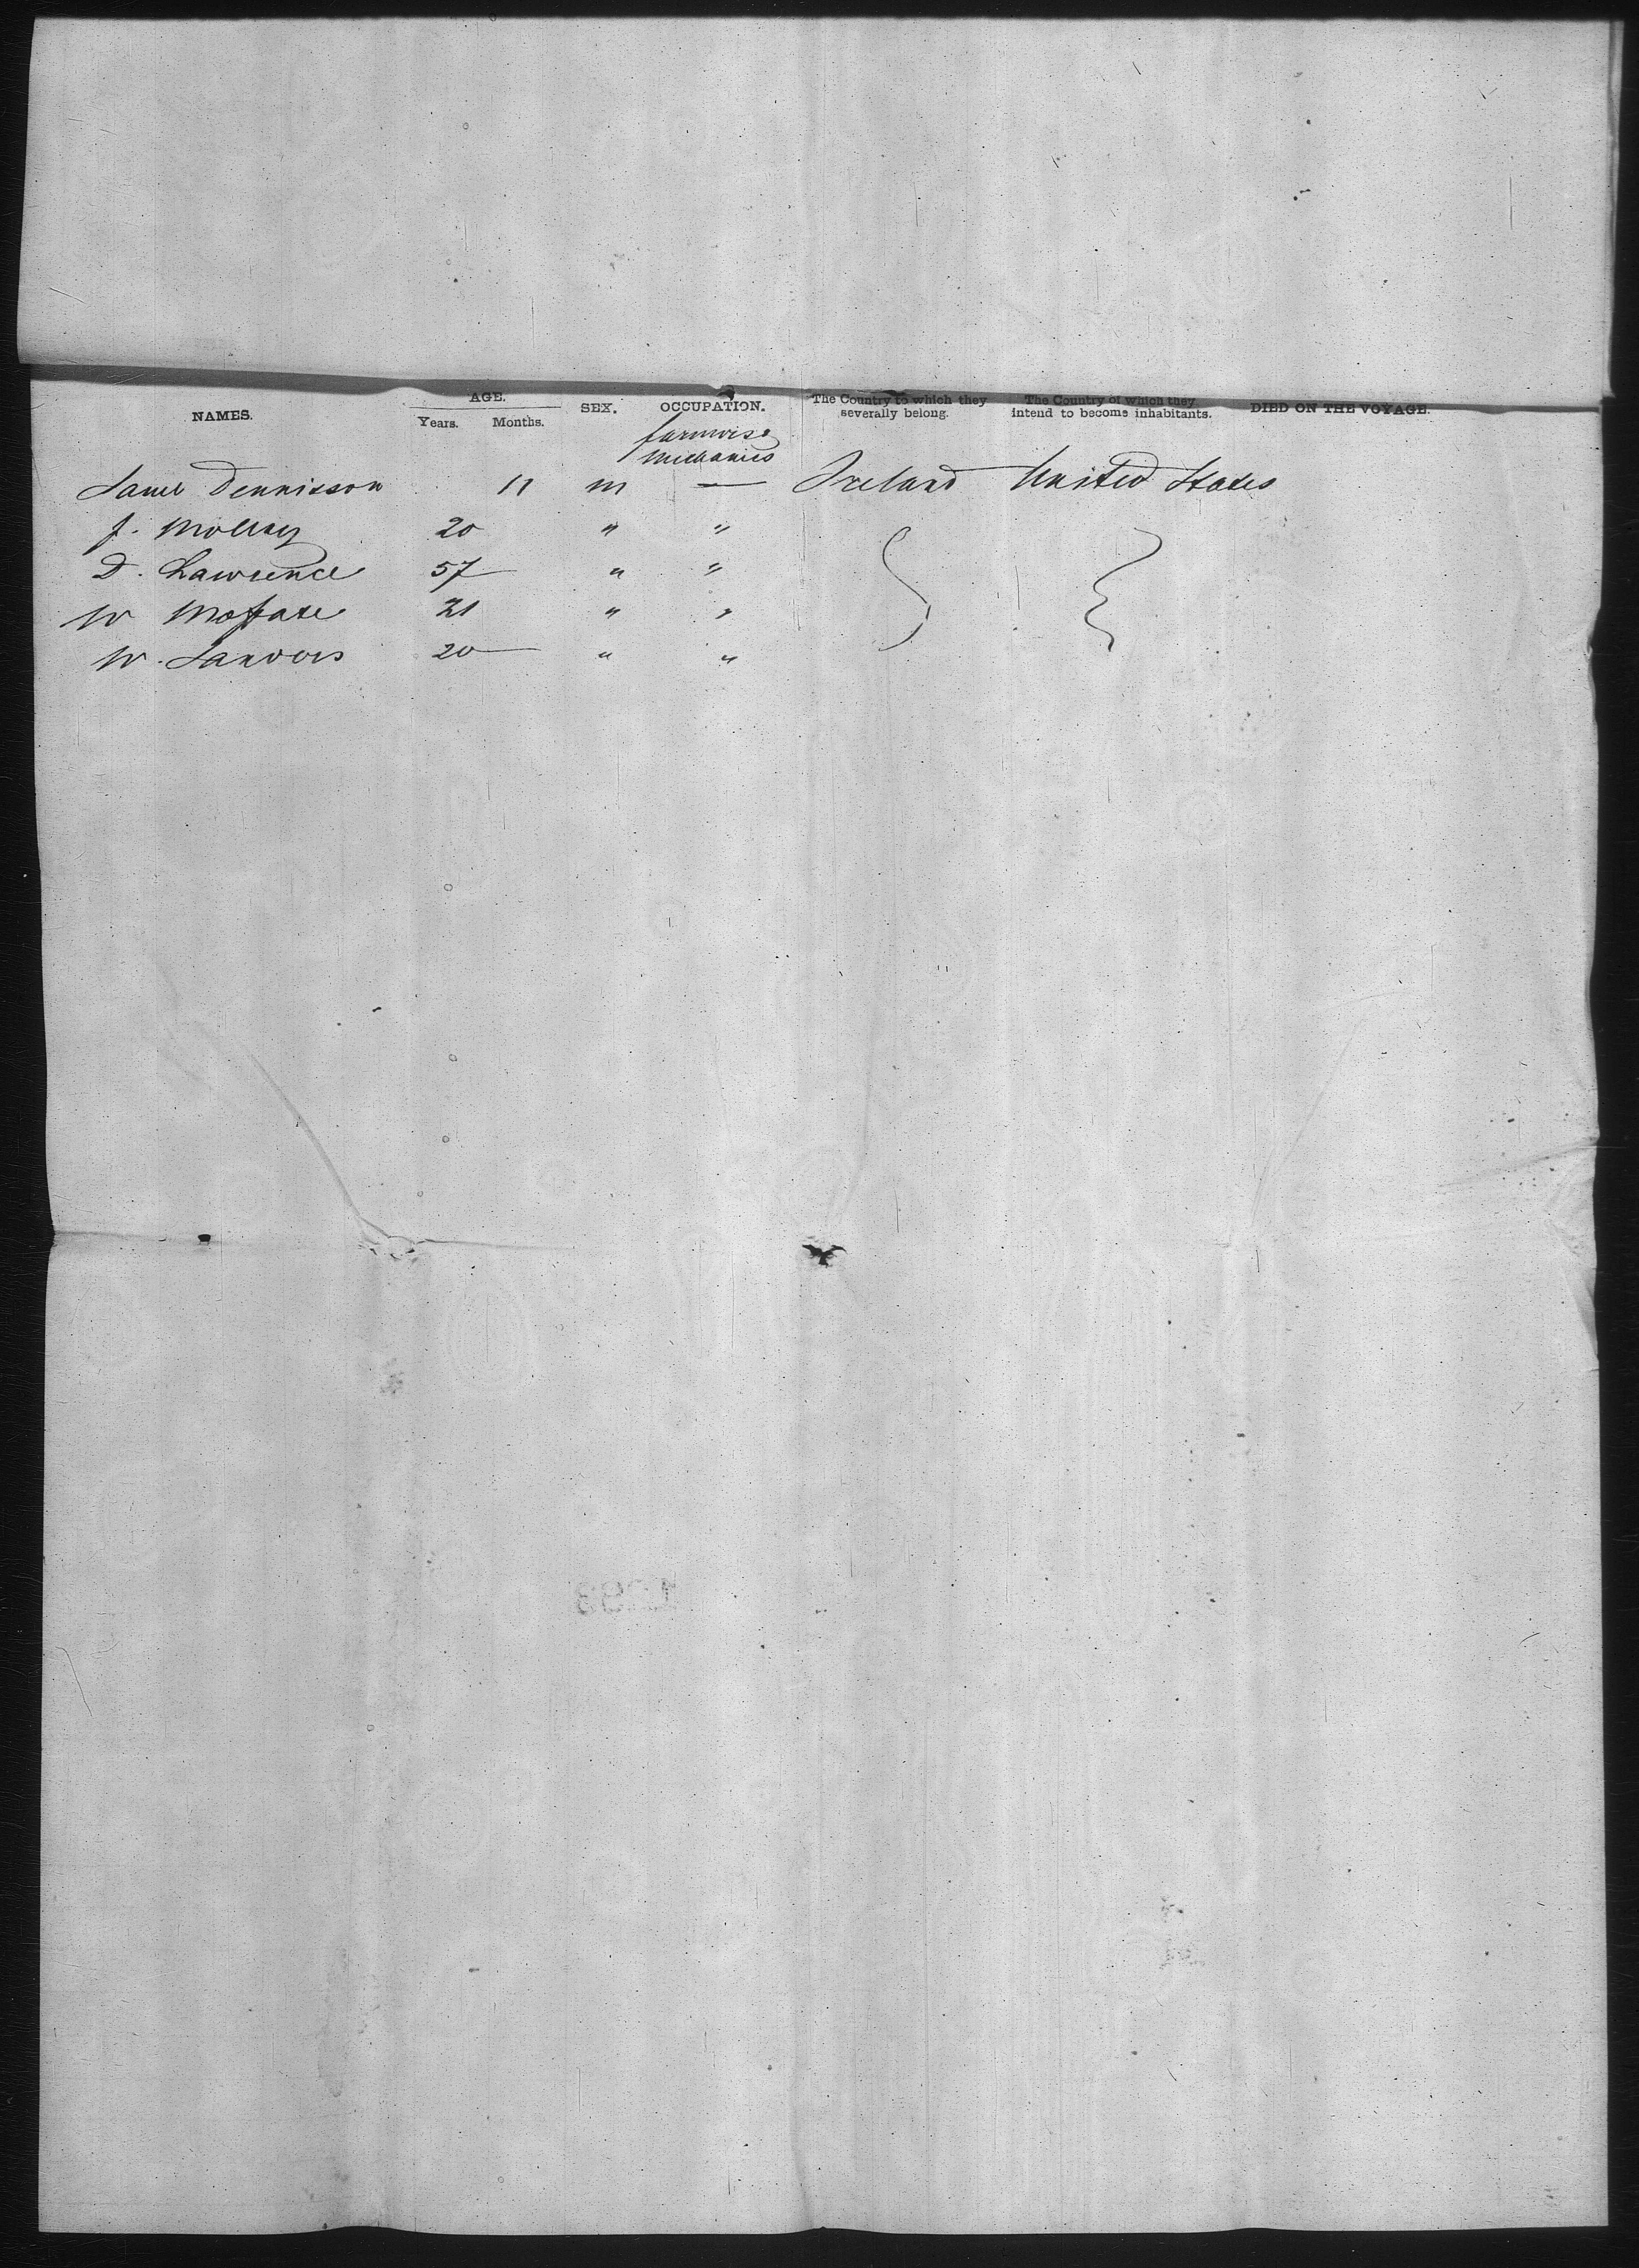 NAMES. AGE. Years. Months. SEX. OCCUPATION. The Country to which they severally belong. The Country of which they intend to become inhabitants. DIED ON THE VOYAGE.
mechanics
Saml Dennisson 11 m — Ireland United States
J. 20 " "
D. Lawrence 57 " "
W 21 " "
W. Sanders 20 " "